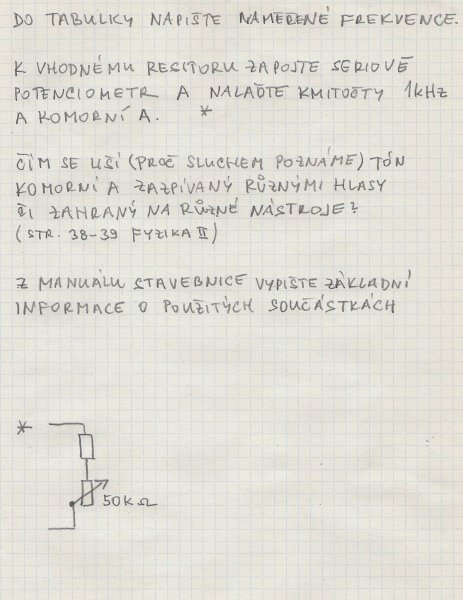 DO TABULKY NAPIŠTE NAMĚŘENÉ FREKVENCE.
K VHODNÉMU RESITORU ZAPOJTE SERIOVĚ
POTENCIOMETR A NALAĎTE KMITOČTY 1kHz
A KOMORNÍ A. *
ČÍM SE LIŠÍ (PROČ SLUCHEM POZNÁME) TÓN
KOMORNÍ A ZAZPÍVANÝ RŮZNÝMI HLASY
ČI ZAHRANÝ NA RŮZNÉ NÁSTROJE?
(STR. 38-39 FYZIKA II)
Z MANUÁLU STAVEBNICE VYPIŠTE ZÁKLADNÍ
INFORMACE O POUŽITÝCH SOUČÁSTKÁCH
*
50KΩ